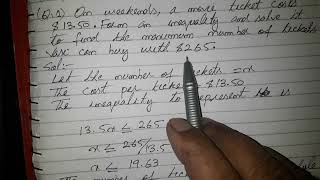 (Q:1) On weekends, a movie ticket costs
$13.50. Form an inequality and solve it
to find the maximum number of tickets
can buy with $265.
Sol:-
Let the number of tickets = x
The cost per ticket = $13.50
The inequality to represent is
13.5x ≤ 265
x ≤ 265/13.5
x ≤ 19.63
The number of tickets